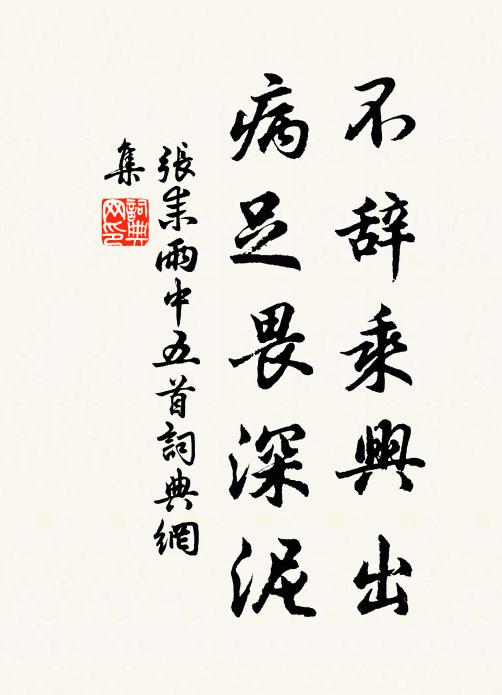 不辞乘興出
病足畏深泥
張耒雨中五首詞典網
集
詞典
网印